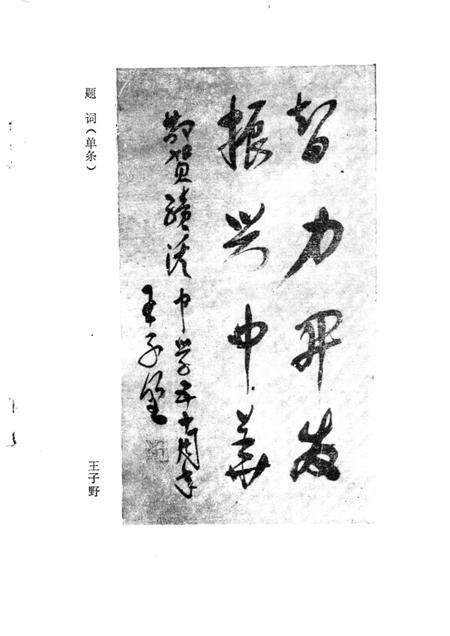 智力开发
振兴中华
敬贺绩溪中学五十周年
王子野
题 词（单条）
王子野